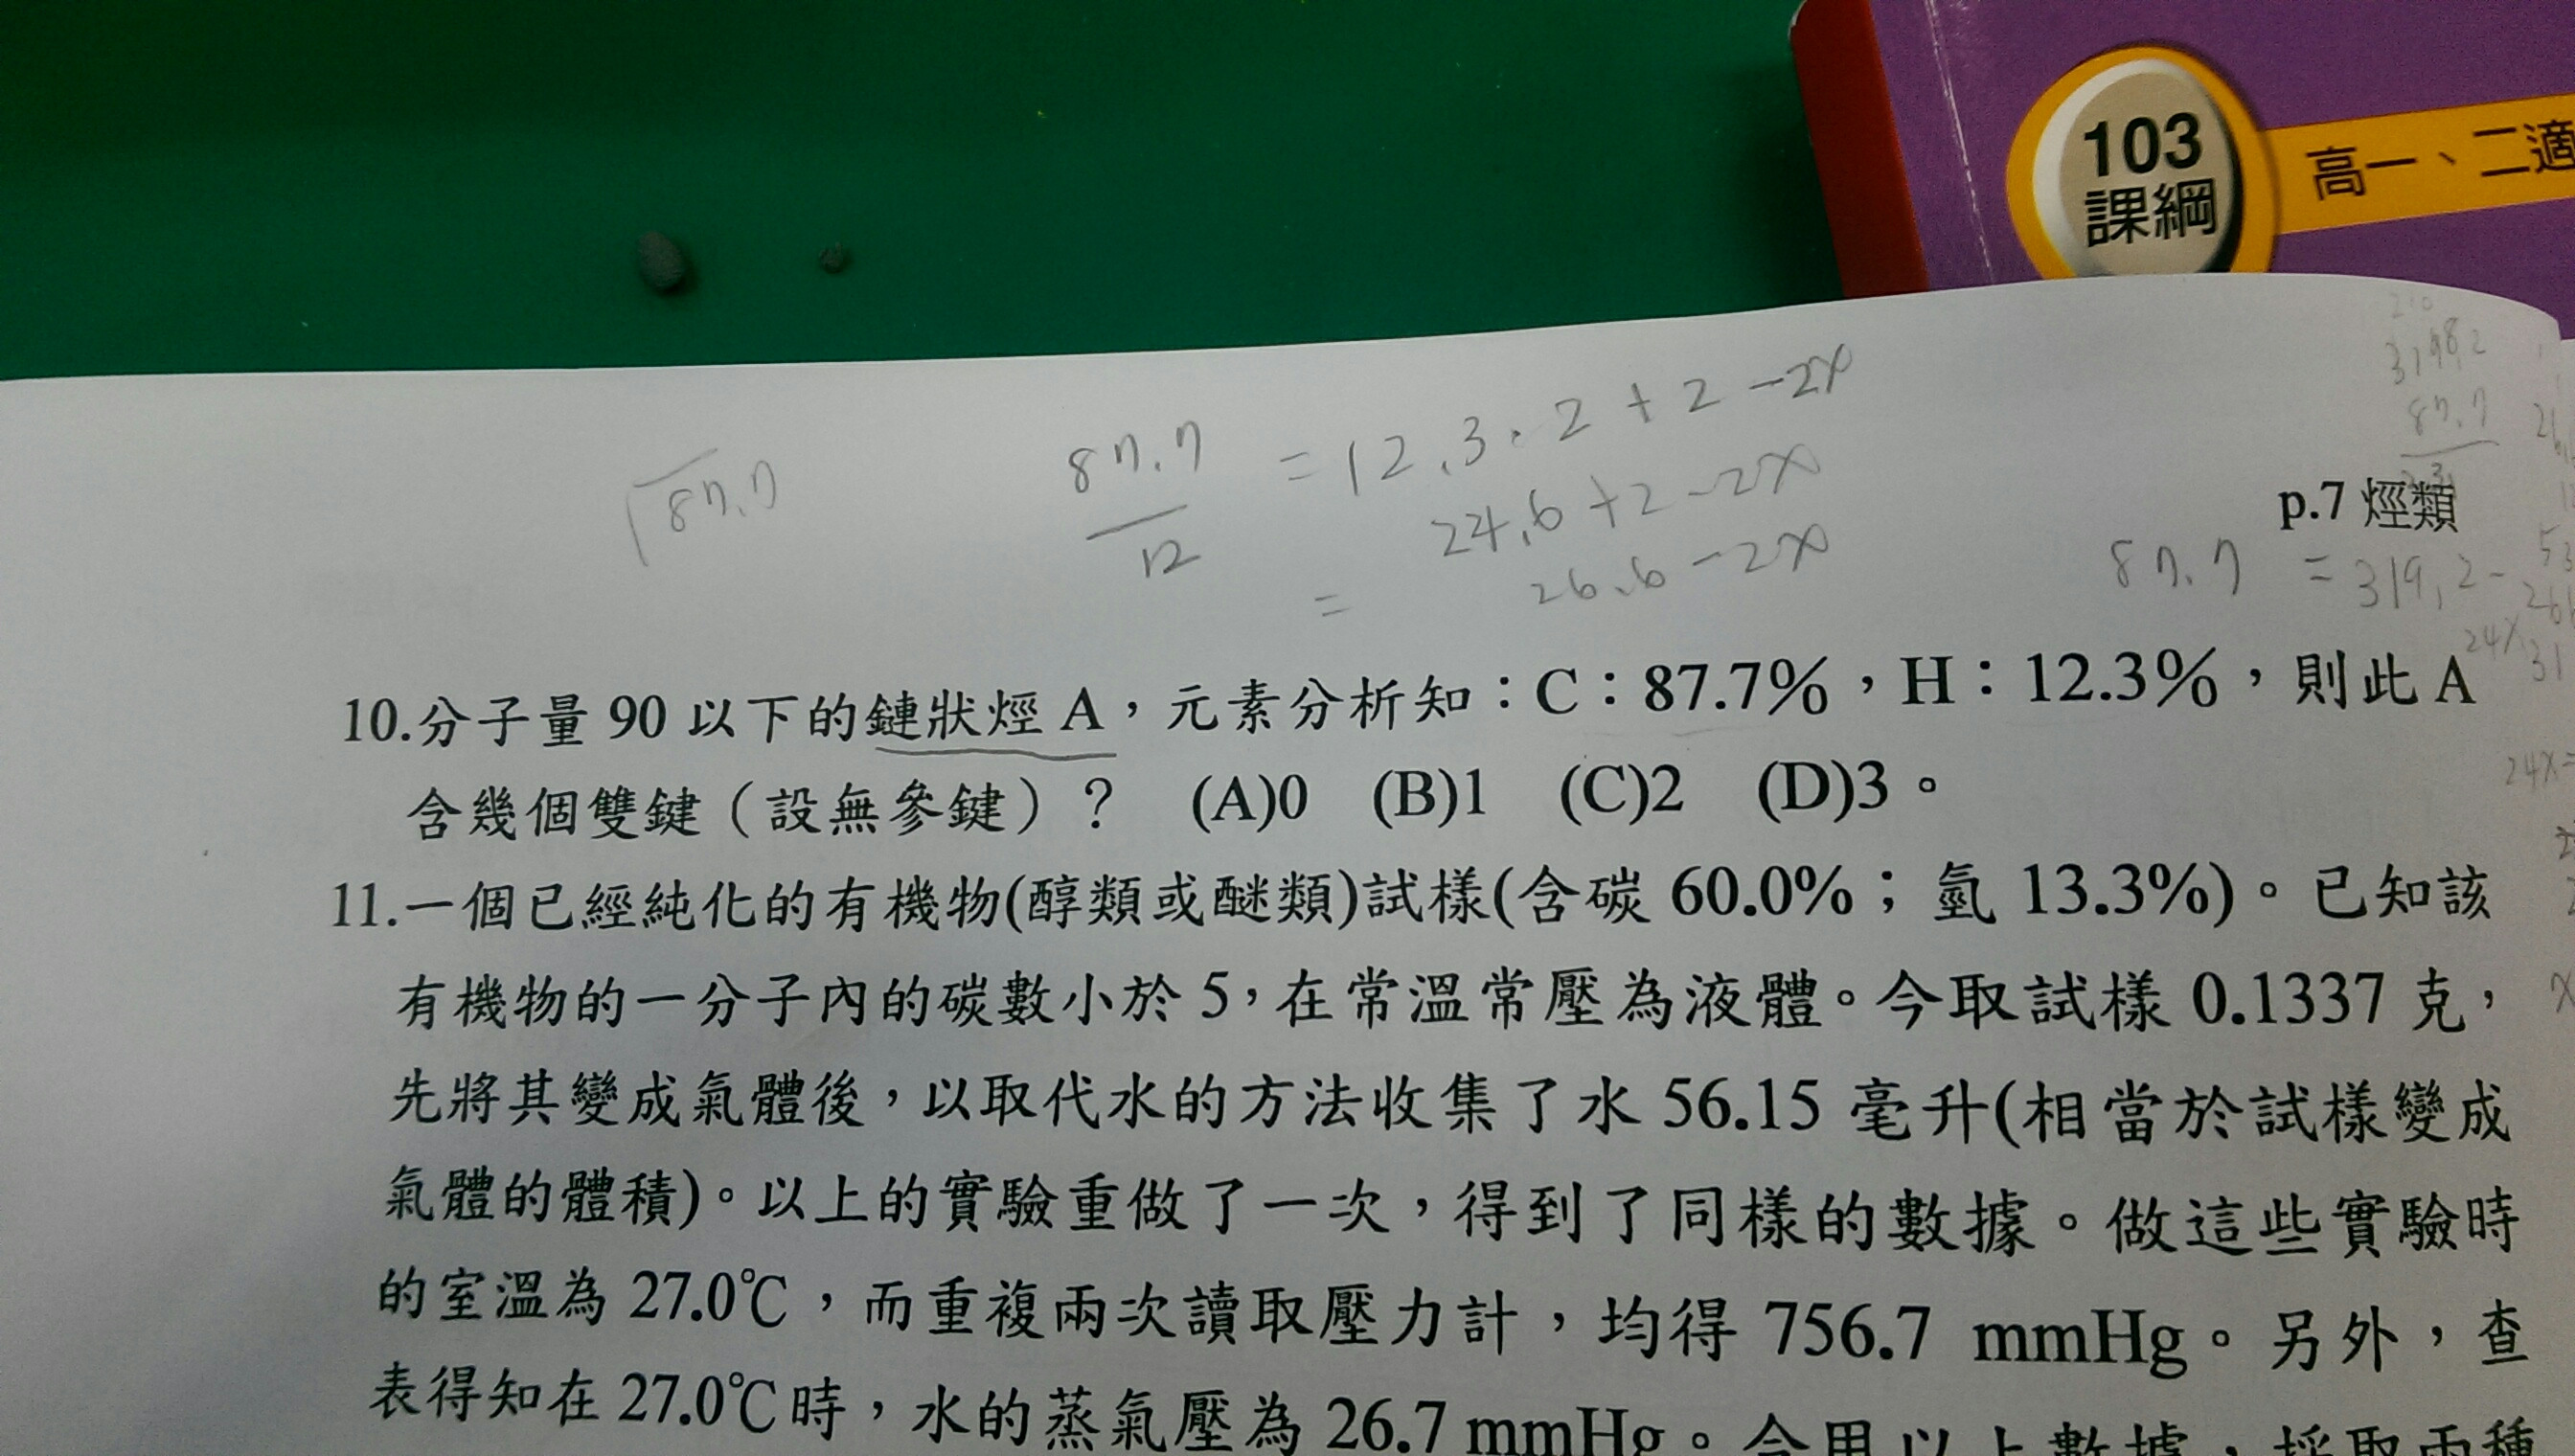 103
課綱
高一、二適
87.7
87.7 = 12.3.2+2-2x
12
24.6+2-2x
= 26.6-2x
p.7 烴類
87.7 = 319.2-
10.分子量 90 以下的鏈狀烴 A，元素分析知：C：87.7%，H：12.3%，則此 A
含幾個雙鍵（設無參鍵）？ (A)0 (B)1 (C)2 (D)3。
11.一個已經純化的有機物(醇類或醚類)試樣(含碳 60.0%；氫 13.3%)。已知該
有機物的一分子內的碳數小於 5，在常溫常壓為液體。今取試樣 0.1337 克，
先將其變成氣體後，以取代水的方法收集了水 56.15 毫升(相當於試樣變成
氣體的體積)。以上的實驗重做了一次，得到了同樣的數據。做這些實驗時
的室溫為 27.0℃，而重複兩次讀取壓力計，均得 756.7 mmHg。另外，查
表得知在 27.0℃時，水的蒸氣壓為 26.7 mmHg。今用以上數據，採取兩種